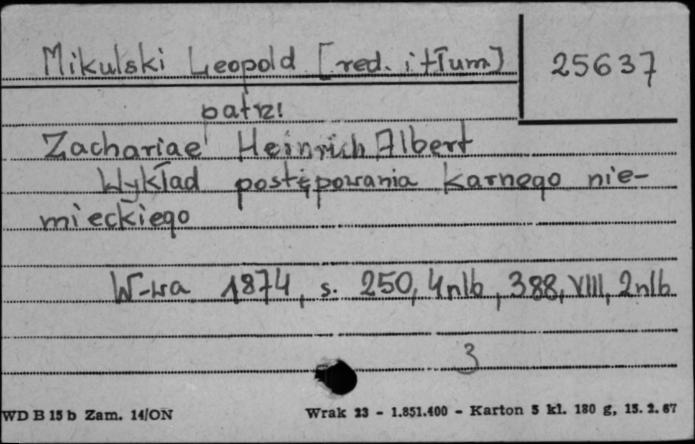 Mikulski Leopold [red. i tłum]
25637
patrz:
Zachariae Heinrich Albert
Wykład postępowania karnego nie-
mieckiego
W-wa 1874, s. 250, 4nlb, 388, VIII, 2nlb
3
WD B 15 b Zam. 14/ON
Wrak 23 - 1.851.400 - Karton 5 kl. 180 g, 15. 2. 67